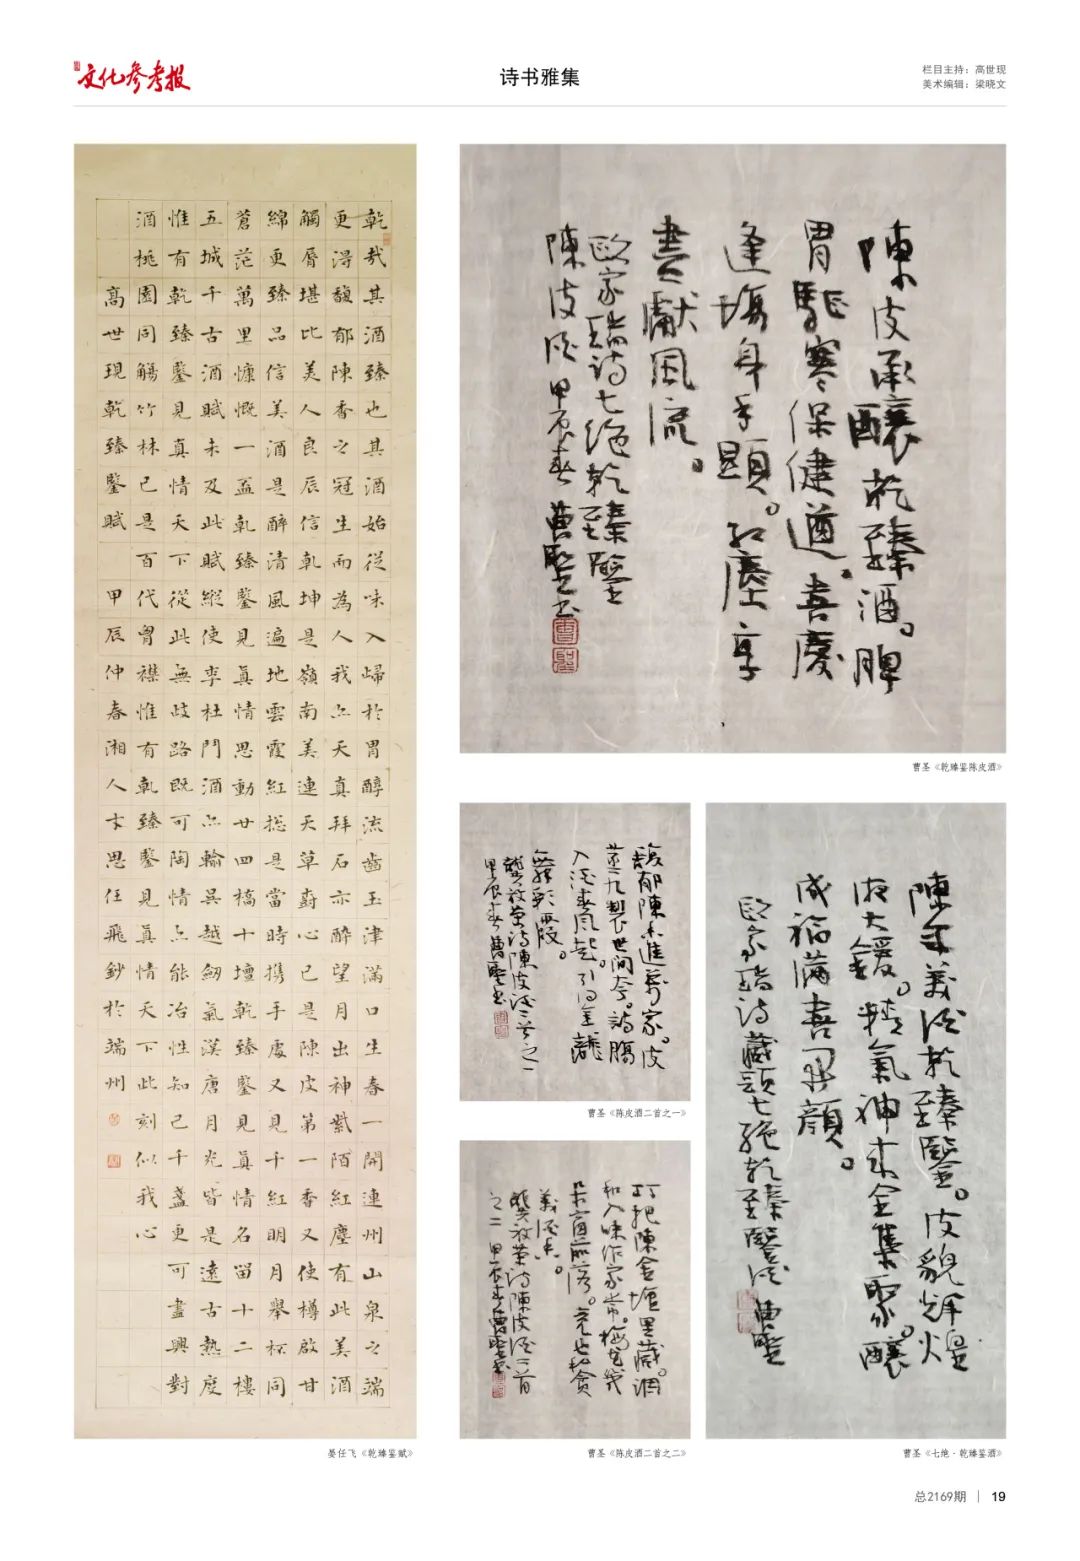 文化参考报
诗书雅集
栏目主持：高世现
美术编辑：梁晓文
乾哉其酒臻也其酒始從味入歸於胃醇流齒玉津滿口生春一開連州山泉之端
更淂馥郁陳香之冠生而為人我亦天真拜石亦醉望月出神紫陌紅塵有此美酒
觸脣堪比美人良辰信乾坤是嶺南美連天草樹心已是陳皮第一香又使樽啟甘
綿更臻品信美酒是醉清風遍地雲霞紅捴是當時攜手處又見千紅明月舉杯同
蒼茫萬里慷慨一盃乾臻鑒見真情思動廿四橋十壇乾臻鑒見真情名留十二樓
五城千古酒賦未及此賦縱使李杜鬥酒亦輸吳越劒氣漢唐月光皆是遠古熱度
惟有乾臻鑒見真情天下從此無歧路既可陶情亦能冶性知己千盞更可盡興對
酒桃園同觴竹林已是百代胷襟惟有乾臻鑒見真情天下此刻似我心
高世現乾臻鑒賦 甲辰仲春湘人卞思任飛鈔於端州
晏任飞《乾臻鉴赋》
陳皮承釀乾臻酒。脾
胃駈寒保健遒。喜慶
逢塲身手顯。紅塵享
盡獻風流。
歐家瑞詩七绝乾臻鑒
陳皮酒 甲辰春 曹聖书
曹圣《乾臻鉴陈皮酒》
馥郁陳香進萬家。皮
蒸九製世间夸。詩腸
入酒春风起。引得金龍
舞彩霞。
詩陳皮酒二首之一
甲辰春曹聖书
曹圣《陈皮酒二首之一》
巧把陳倉壇里藏。調
和入味作家常。梅花幾
朵窗前落。竟也知貪
美酒香。
詩陳皮酒二首
之二 甲辰春曹聖书
曹圣《陈皮酒二首之二》
陳年美酒乾臻鑒。皮貌輝煌
精氣神来全集聚。釀
成福滿喜开顏。
歐家瑞詩藏頭七绝乾臻鑒酒 曹聖
曹圣《七绝·乾臻鉴酒》
总2169期 | 19